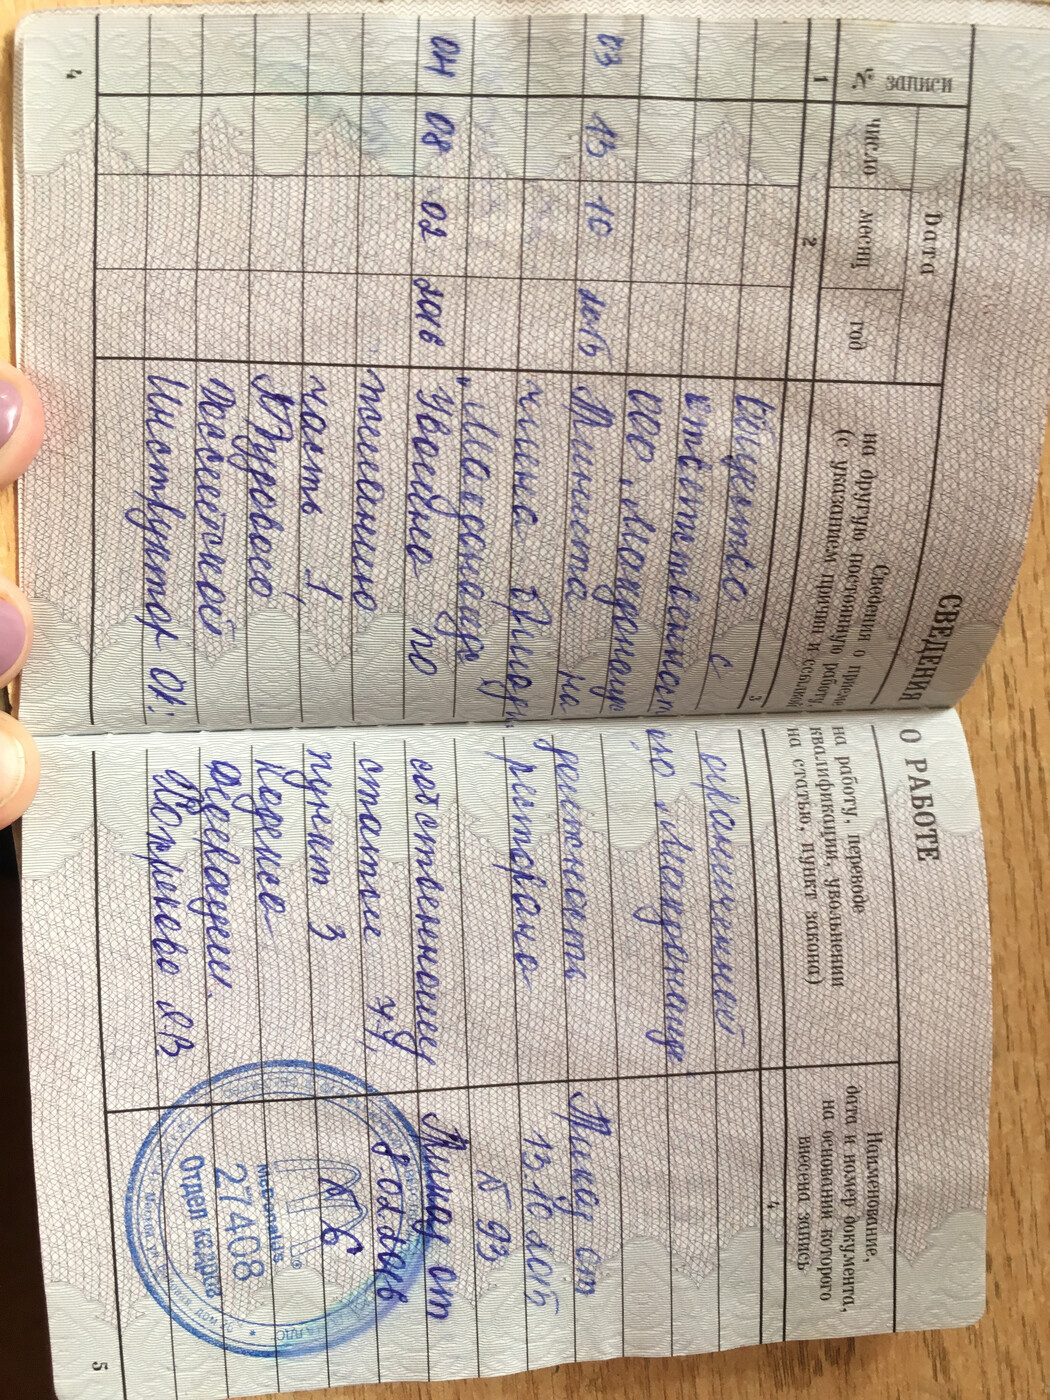 СВЕДЕНИЯ О РАБОТЕ
№ записи
Дата
число
месяц
год
Сведения о приеме на работу, переводе
на другую постоянную работу, квалификации, увольнении
(с указанием причин и ссылкой на статью, пункт закона)
Наименование,
дата и номер документа,
на основании которого
внесена запись
1
2
3
4
Общество с ограниченной
ответственностью "Макдоналдс"
ООО "Макдоналдс"
03 13 10 2015 Принята на должность Приказ от
члена бригады ресторана 13.10.2015
"Макдоналдс" 93
04 08 02 2016 Уволена по собственному Приказ от
желанию, статья 77, 8.02.2016
часть 1, пункт 3 6
Трудового Кодекса
Российской Федерации.
Инструктор ОК:
McDonald's®
27408
Отдел кадров
4
5